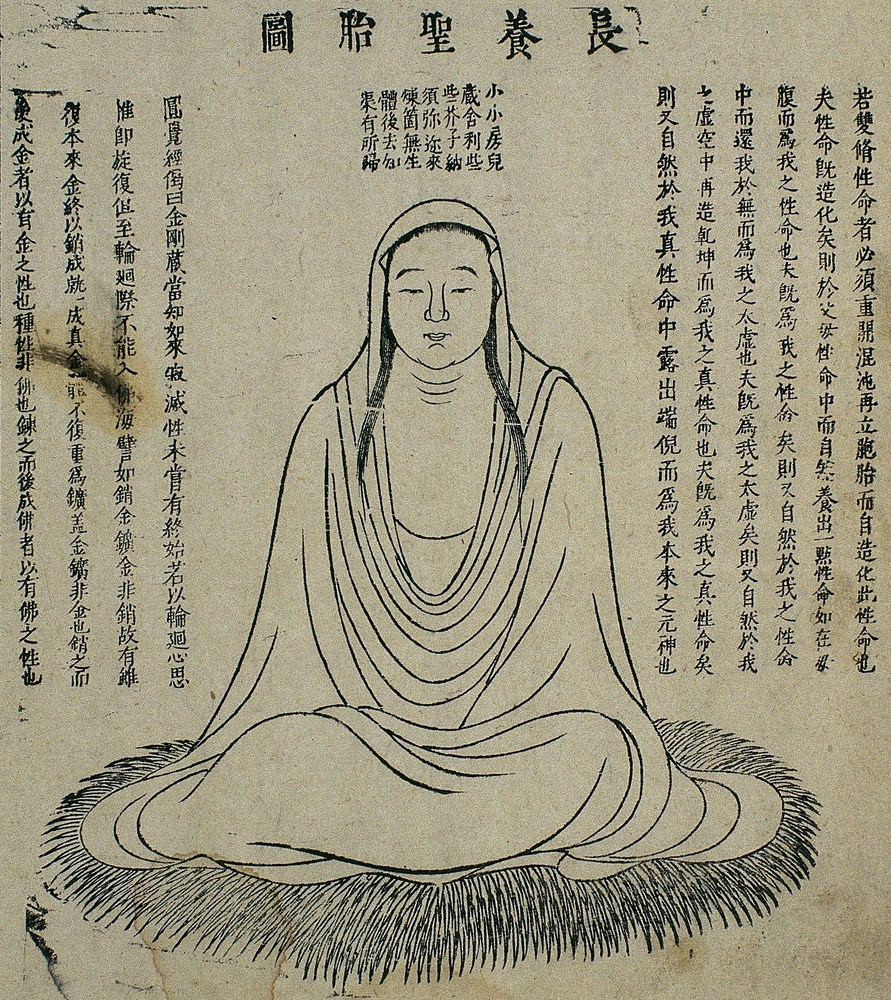 長養聖胎圖
若雙脩性命者必須重開混沌再立胞胎而自造化此性命也
夫性命旣造化矣則於父母性命中而自然養出一點性命如在母
腹而爲我之性命也夫旣爲我之性命矣則又自然於我之性命
中而還我於無而爲我之太虛也夫旣爲我之太虛矣則又自然於我
之虛空中再造乾坤而爲我之真性命也夫旣爲我之真性命矣
則又自然於我真性命中露出端倪而爲我本來之元神也
小小房兒
藏舍利些
些芥子納
須弥迩來
煉箇無生
體後去知
渠有所歸
圓覺經偈曰金剛藏當知如來寂滅性未嘗有終始若以輪廻心思
惟即旋復但至輪廻際不能入佛海譬如銷金鑛金非銷故有雖
復本來金終以銷成就一成真金不復重爲鑛盖金鑛非金也銷之而
成金者以有金之性也種性非佛也鍊之而後成佛者以有佛之性也